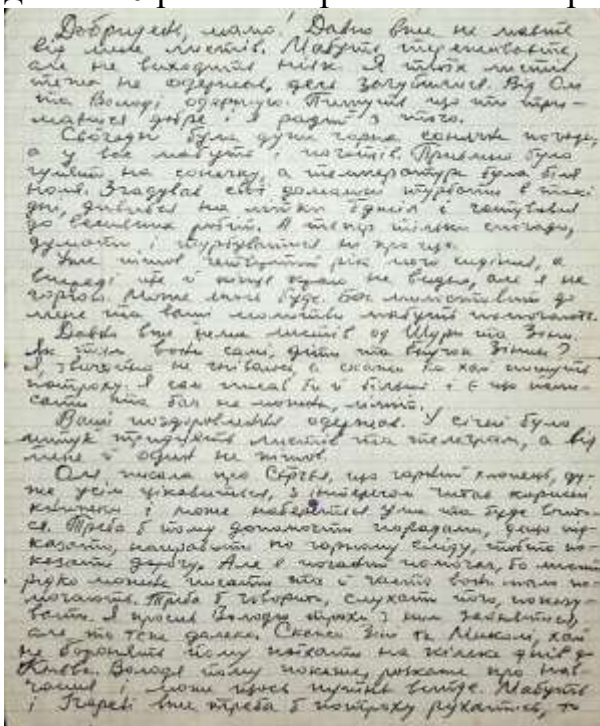 Добридень, мамо! Давно вже не маєте
від мене листів. Мабуть турбуєтесь,
але не виходить ніяк. Я також листів
теж не одержав, десь загубились. Від Олі
та Володі одержую. Пишуть що ти три-
маєшся добре і я радий з того.
Сьогодні була дуже гарна сонячна погода,
а у вас мабуть і поготів. Приємно було
гуляти на сонечку, а температура була біля
ноля. Згадував свої домашні турботи в такі
дні, дивився на літки бджіл і готувався
до весняних робіт. А тепер тільки спогади,
думати і турбуватися ні про що.
Уже пішов четвертий рік мого сидіння, а
попереду ще й кінця краю не видно, але я не
горюю. Може якось буде. Бог милостивий до
мене та ваші молитви мабуть помагають.
Давно вже нема листів од Шури та Зіни.
Як там вони самі, діти та внучок Зінин?
Я, звичайно не гніваюсь, а скажи їм хай пишуть
потроху. Я сам писав би й більше і є що напи-
сати та
Ваші поздоровлення одержав. У січні було
штук тридцять листів та телеграм, а від
мене й один не пішов.
Оля писала про Сергія, що гарний хлопець, ду-
же усім цікавиться, з інтересом читає корисні
книжки і може набереться ума та буде вчить-
ся. Треба б йому допомогти порадами, дещо під-
казати, направити по гарному сліду, тобто по-
казати дорогу. Але я поганий помічник, бо листи
рідко можна писати та й часто вони мало по-
магають. Треба б говорить, слухати його, показу-
вать. Я просив Володю трохи з ним зайнятись,
але то теж далеко. Скажи Зіні та Миколі, хай
не боронять йому поїхати на кілька днів до
Києва. Володя йому покаже, розкаже про нав-
чання і може щось путнє вийде. Мабуть
і Ігореві вже треба б потроху рухатись, то